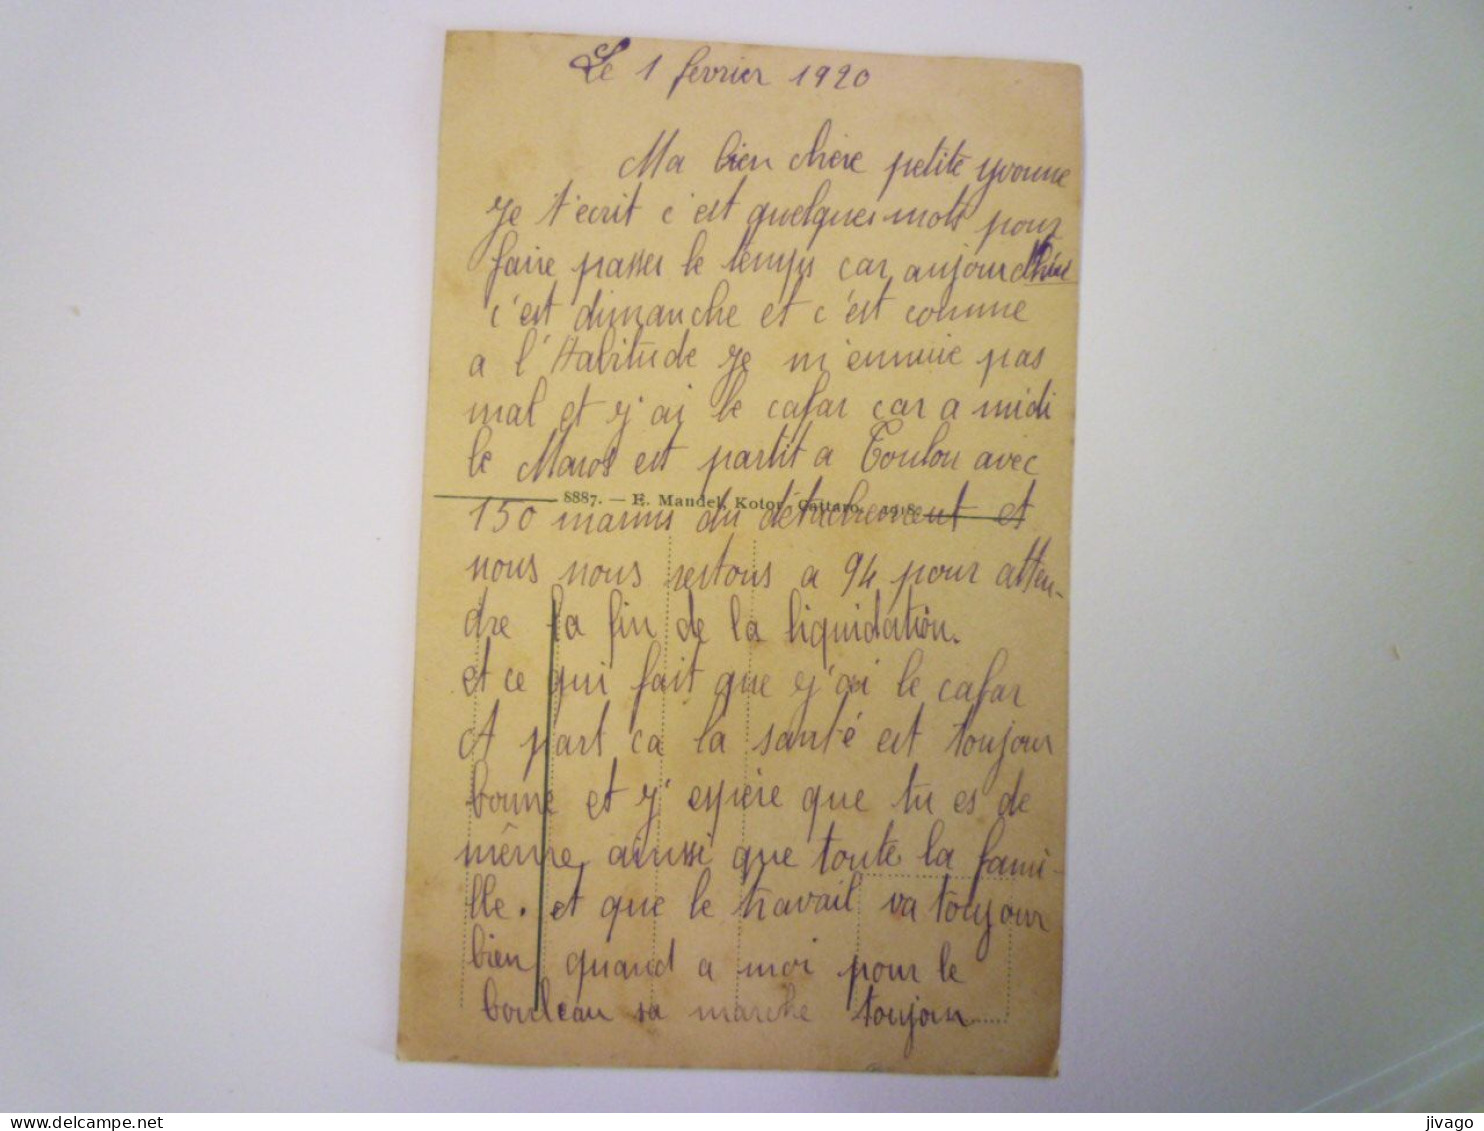 Le 1 fevrier 1920
Ma bien chère petite yvonne
Je t'ecrit c'est quelques mots pour
faire passer le temps car aujourdhui
c'est dimanche et c'est comme
a l'Habitude je m'ennuie pas
mal et j'ai le cafar car a midi
le Maroc est partit a Toulon avec
8887. — E. Mandel, Kotor, Cattaro. 1918.
150 marins du détachement et
nous nous restons a 94 pour atten-
dre la fin de la liquidation.
et ce qui fait que j'ai le cafar
A part ca la santé est toujour
bonne et j'espère que tu es de
même, ainssi que toute la fami-
lle. et que le travail va toujour
bien, quand a moi pour le
bouleau sa marche toujour
jivago